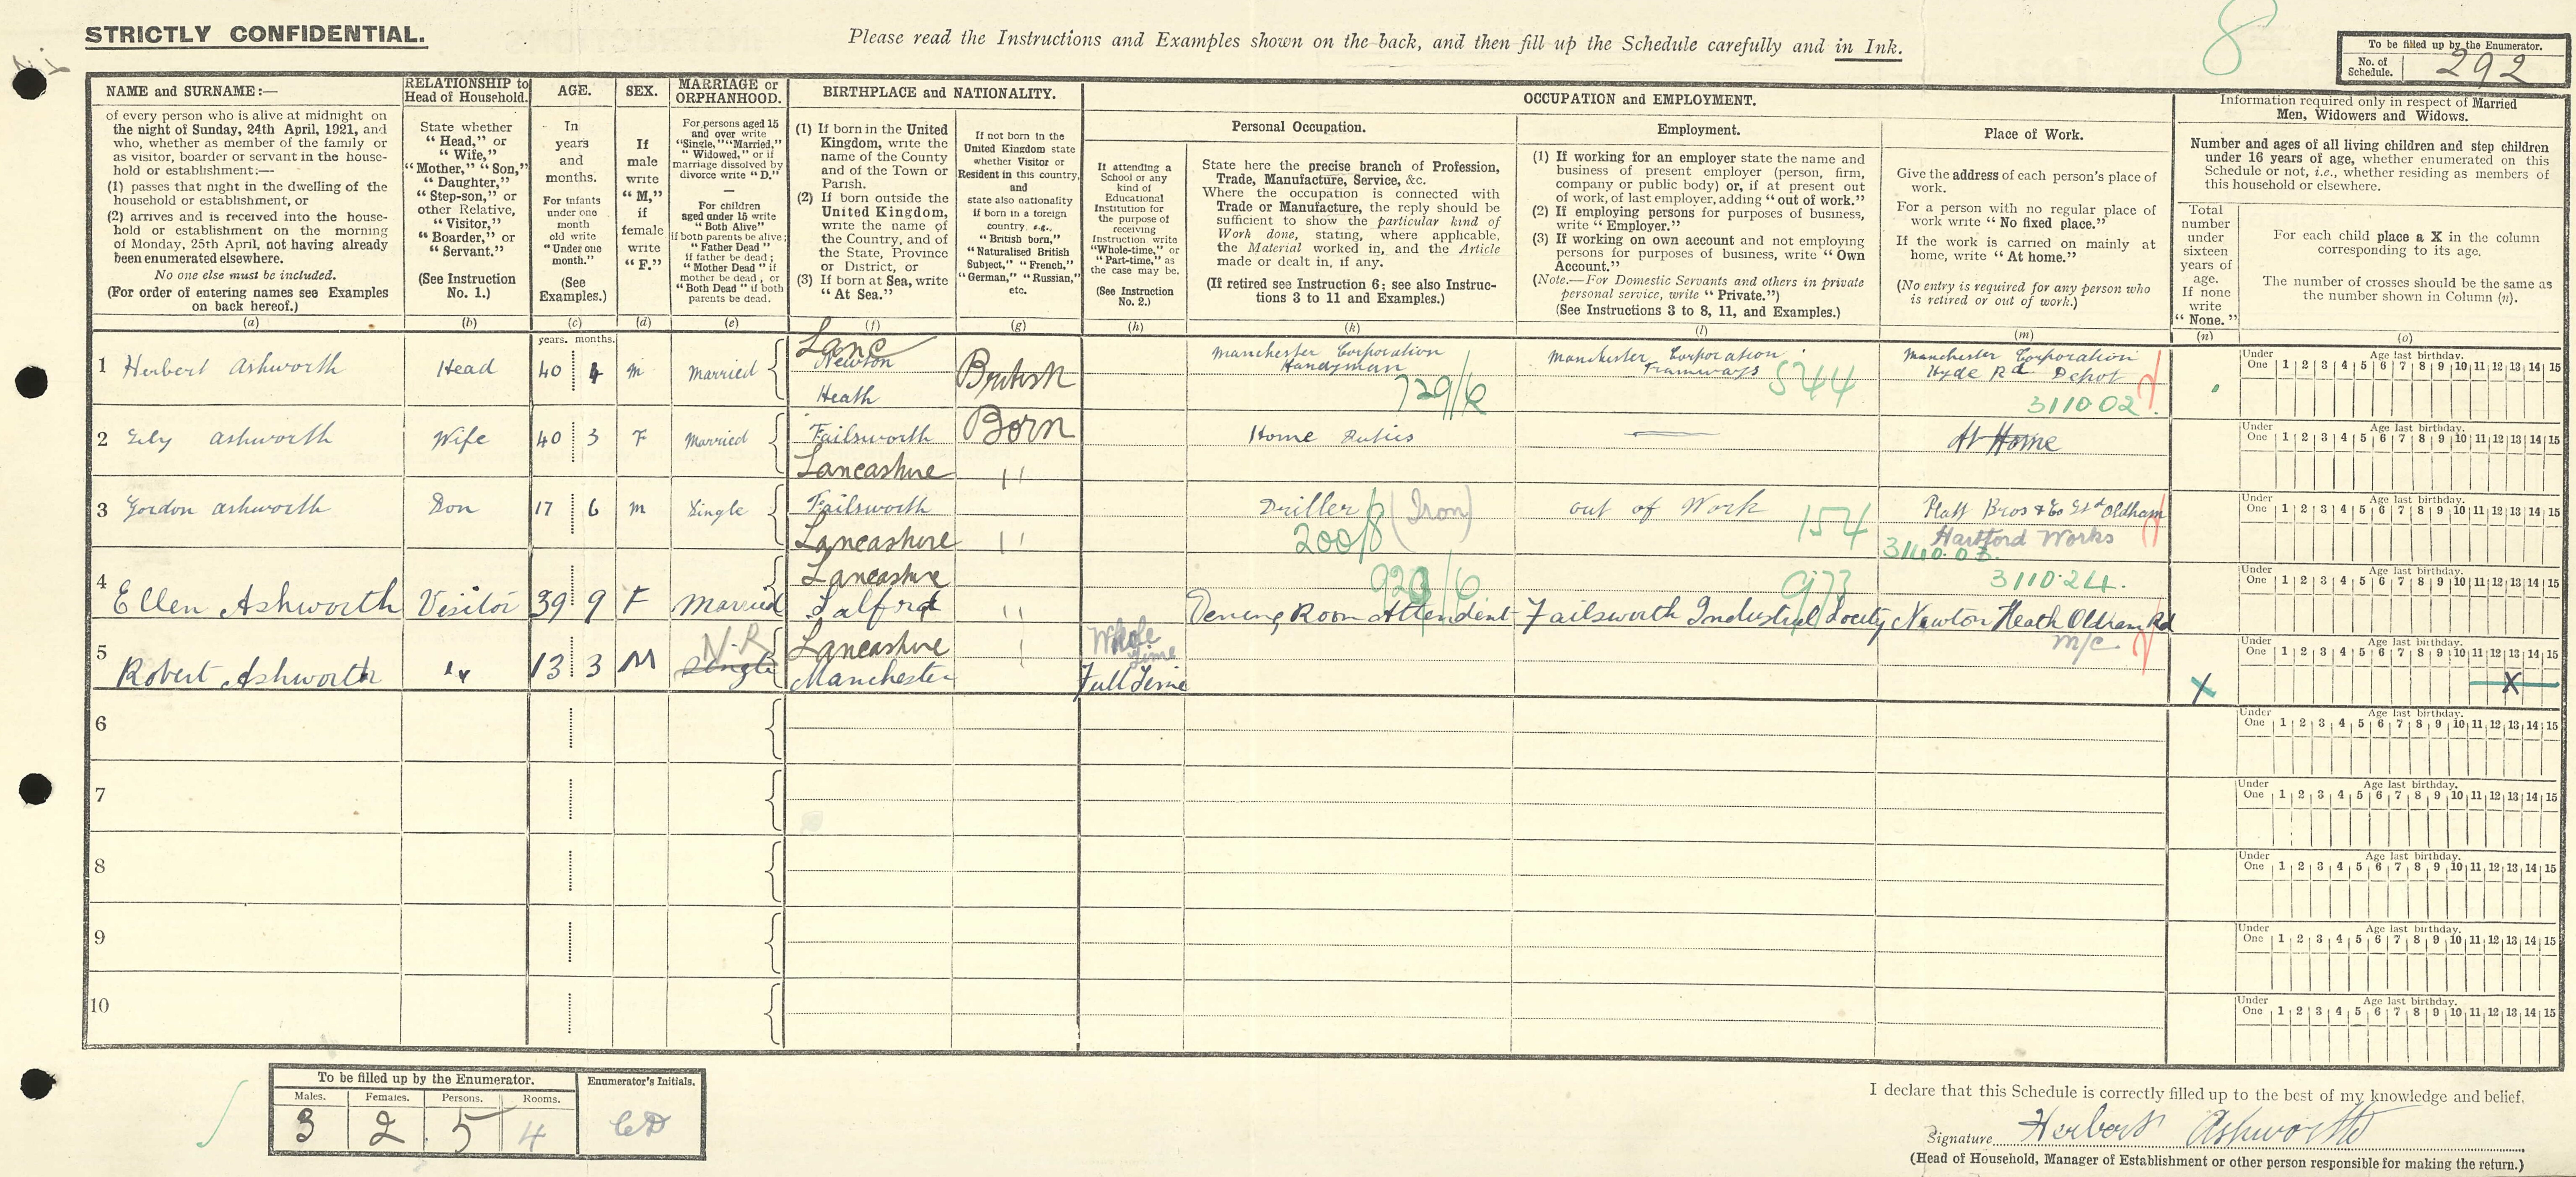 STRICTLY CONFIDENTIAL.
Please read the Instructions and Examples shown on the back, and then fill up the Schedule carefully and in Ink.
8
To be filled up by the Enumerator.
No. of Schedule. 292
NAME and SURNAME:—
of every person who is alive at midnight on
the night of Sunday, 24th April, 1921, and
who, whether as member of the family or
as visitor, boarder or servant in the house-
hold or establishment:—
(1) passes that night in the dwelling of the
household or establishment, or
(2) arrives and is received into the house-
hold or establishment on the morning
of Monday, 25th April, not having already
been enumerated elsewhere.
No one else must be included.
(For order of entering names see Examples
on back hereof.)
(a)
RELATIONSHIP to
Head of Household.
State whether
"Head," or
"Wife,"
"Mother," "Son,"
"Daughter,"
"Step-son," or
other Relative,
"Visitor,"
"Boarder," or
"Servant."
(See Instruction
No. 1.)
(b)
AGE.
In
years
and
months.
For infants
under one
month
old write
"Under one
month."
(See
Examples.)
(c)
SEX.
If
male
write
"M,"
if
female
write
"F."
(d)
MARRIAGE or
ORPHANHOOD.
For persons aged 15
and over write
"Single," "Married,"
"Widowed," or if
marriage dissolved by
divorce write "D."
—
For children
aged under 15 write
"Both Alive"
if both parents be alive;
"Father Dead"
if father be dead;
"Mother Dead" if
mother be dead, or
"Both Dead" if both
parents be dead.
(e)
BIRTHPLACE and NATIONALITY.
(1) If born in the United
Kingdom, write the
name of the County
and of the Town or
Parish.
(2) If born outside the
United Kingdom,
write the name of
the Country, and of
the State, Province
or District, or
(3) If born at Sea, write
"At Sea."
(f)
If not born in the
United Kingdom state
whether Visitor or
Resident in this country,
and
state also nationality
if born in a foreign
country e.g.,
"British born,"
"Naturalised British
Subject," "French,"
"German," "Russian,"
etc.
(g)
OCCUPATION and EMPLOYMENT.
If attending a
School or any
kind of
Educational
Institution for
the purpose of
receiving
Instruction write
"Whole-time," or
"Part-time," as
the case may be.
(See Instruction
No. 2.)
(h)
Personal Occupation.
State here the precise branch of Profession,
Trade, Manufacture, Service, &c.
Where the occupation is connected with
Trade or Manufacture, the reply should be
sufficient to show the particular kind of
Work done, stating, where applicable,
the Material worked in, and the Article
made or dealt in, if any.
(If retired see Instruction 6; see also Instruc-
tions 3 to 11 and Examples.)
(k)
Employment.
(1) If working for an employer state the name and
business of present employer (person, firm,
company or public body) or, if at present out
of work, of last employer, adding "out of work."
(2) If employing persons for purposes of business,
write "Employer."
(3) If working on own account and not employing
persons for purposes of business, write "Own
Account."
(Note.—For Domestic Servants and others in private
personal service, write "Private.")
(See Instructions 3 to 8, 11, and Examples.)
(l)
Place of Work.
Give the address of each person's place of
work.
For a person with no regular place of
work write "No fixed place."
If the work is carried on mainly at
home, write "At home."
(No entry is required for any person who
is retired or out of work.)
(m)
Information required only in respect of Married
Men, Widowers and Widows.
Number and ages of all living children and step children
under 16 years of age, whether enumerated on this
Schedule or not, i.e., whether residing as members of
this household or elsewhere.
Total
number
under
sixteen
years of
age.
If none
write
"None."
(n)
For each child place a X in the column
corresponding to its age.
The number of crosses should be the same as
the number shown in Column (n).
(o)
years. months.
1 Herbert Ashworth Head 40 4 m Married Lanc Newton Heath British Born Manchester Corporation Handyman 729/6 Manchester Corporation Tramways 544 Manchester Corporation Hyde Rd Depot 311002.
Under One Age last birthday. 1 2 3 4 5 6 7 8 9 10 11 12 13 14 15
2 Lily Ashworth Wife 40 3 F Married Failsworth Lancashire " Home Duties — At Home
Under One Age last birthday. 1 2 3 4 5 6 7 8 9 10 11 12 13 14 15
3 Gordon Ashworth Son 17 6 m Single Failsworth Lancashire " Driller (Iron) 200/8 out of Work 154 Platt Bros & Co Ltd Oldham Hartford Works
Under One Age last birthday. 1 2 3 4 5 6 7 8 9 10 11 12 13 14 15
4 Ellen Ashworth Visitor 39 9 F Married Lancashire Salford " Dening Room Attendent Failsworth Industrial Socity 973 3110.24. Newton Heath Oldham Rd M/C
Under One Age last birthday. 1 2 3 4 5 6 7 8 9 10 11 12 13 14 15
5 Robert Ashworth " 13 3 M Single N.R Lancashire Manchester Whole Time Full Time X X
Under One Age last birthday. 1 2 3 4 5 6 7 8 9 10 11 12 13 14 15
6 Under One Age last birthday. 1 2 3 4 5 6 7 8 9 10 11 12 13 14 15
7 Under One Age last birthday. 1 2 3 4 5 6 7 8 9 10 11 12 13 14 15
8 Under One Age last birthday. 1 2 3 4 5 6 7 8 9 10 11 12 13 14 15
9 Under One Age last birthday. 1 2 3 4 5 6 7 8 9 10 11 12 13 14 15
10 Under One Age last birthday. 1 2 3 4 5 6 7 8 9 10 11 12 13 14 15
To be filled up by the Enumerator.
Males. Females. Persons. Rooms.
3 2 5 4
Enumerator's Initials.
I declare that this Schedule is correctly filled up to the best of my knowledge and belief.
Signature Herbert Ashworth
(Head of Household, Manager of Establishment or other person responsible for making the return.)